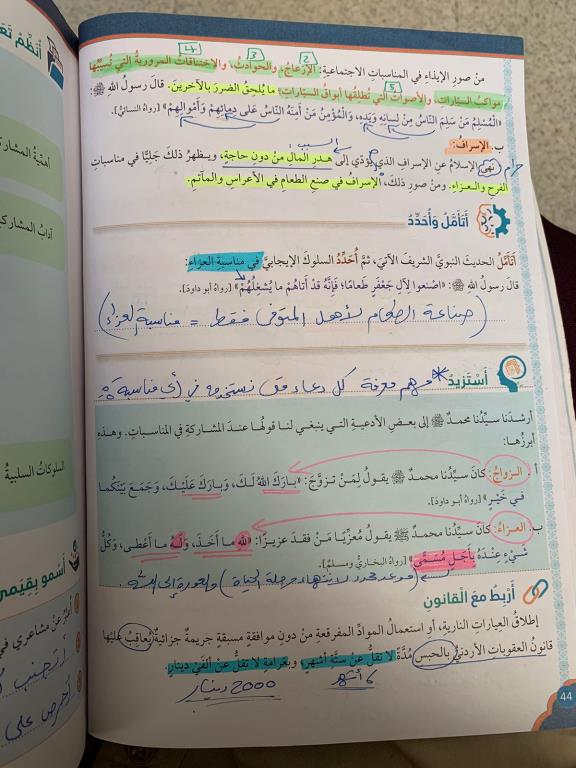 4 3 2
من صور الإيذاء في المناسبات الاجتماعية: الإزعاج، والحوادث، والاختناقات المرورية التي تسببها
5
مواكب السيارات، والأصوات التي تطلقها أبواق السيارات؛ ما يلحق الضرر بالآخرين. قال رسول الله ﷺ:
«المسلم من سلم الناس من لسانه ويده، والمؤمن من أمنه الناس على دمائهم وأموالهم» [رواه النسائي].
السبب
ب. الإسراف:
حرام نهى الإسلام عن الإسراف الذي يؤدي إلى هدر المال من دون حاجة، ويظهر ذلك جليًا في مناسبات
الفرح والعزاء. ومن صور ذلك، الإسراف في صنع الطعام في الأعراس والمآتم.
أتأمل وأحدد
أتأمل الحديث النبوي الشريف الآتي، ثم أحدد السلوك الإيجابي في مناسبة العزاء:
قال رسول الله ﷺ: «اصنعوا لآل جعفر طعاما؛ فإنه قد أتاهم ما يشغلهم» [رواه أبو داود].
(صناعة الطعام لأهل المتوفى فقط = مناسبة العزاء)
أستزيد * مهم معرفة كل دعاء متى نستخدمه في أي مناسبة
أرشدنا سيدنا محمد ﷺ إلى بعض الأدعية التي ينبغي لنا قولها عند المشاركة في المناسبات. وهذه
أبرزها:
أ. الزواج: كان سيدنا محمد ﷺ يقول لمن تزوج: «بارك الله لك، وبارك عليك، وجمع بينكما
في خير» [رواه أبو داود].
ب. العزاء: كان سيدنا محمد ﷺ يقول معزيا من فقد عزيزا: «لله ما أخذ، وله ما أعطى، وكل
شيء عنده بأجل مسمى» [رواه البخاري ومسلم].
(موعد محدد لانتهاء مرحلة الحياة) والعودة إلى الله
أربط مع القانون
إطلاق العيارات النارية، أو استعمال المواد المفرقعة من دون موافقة مسبقة جريمة جزائية يعاقب عليها
قانون العقوبات الأردني بالحبس مدة لا تقل عن ستة أشهر، وبغرامة لا تقل عن ألفي دينار.
6 أشهر 2000 دينار
44
أنظم تع
أهمية المشارك
آداب المشارك
السلوكات السلبية
أسمو بقيمي
أعبر عن مشاعري، في
أتجنب
أحرص على